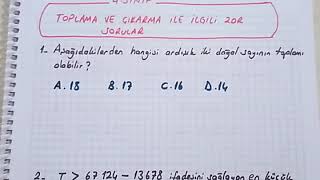 4.SINIF
TOPLAMA VE ÇIKARMA İLE İLGİLİ ZOR
SORULAR
1- Aşağıdakilerden hangisi ardışık iki doğal sayının toplamı
olabilir?
A.18 B.17 C.16 D.14
2- T > 67124 - 13678 ifadesini sağlayan en küçük